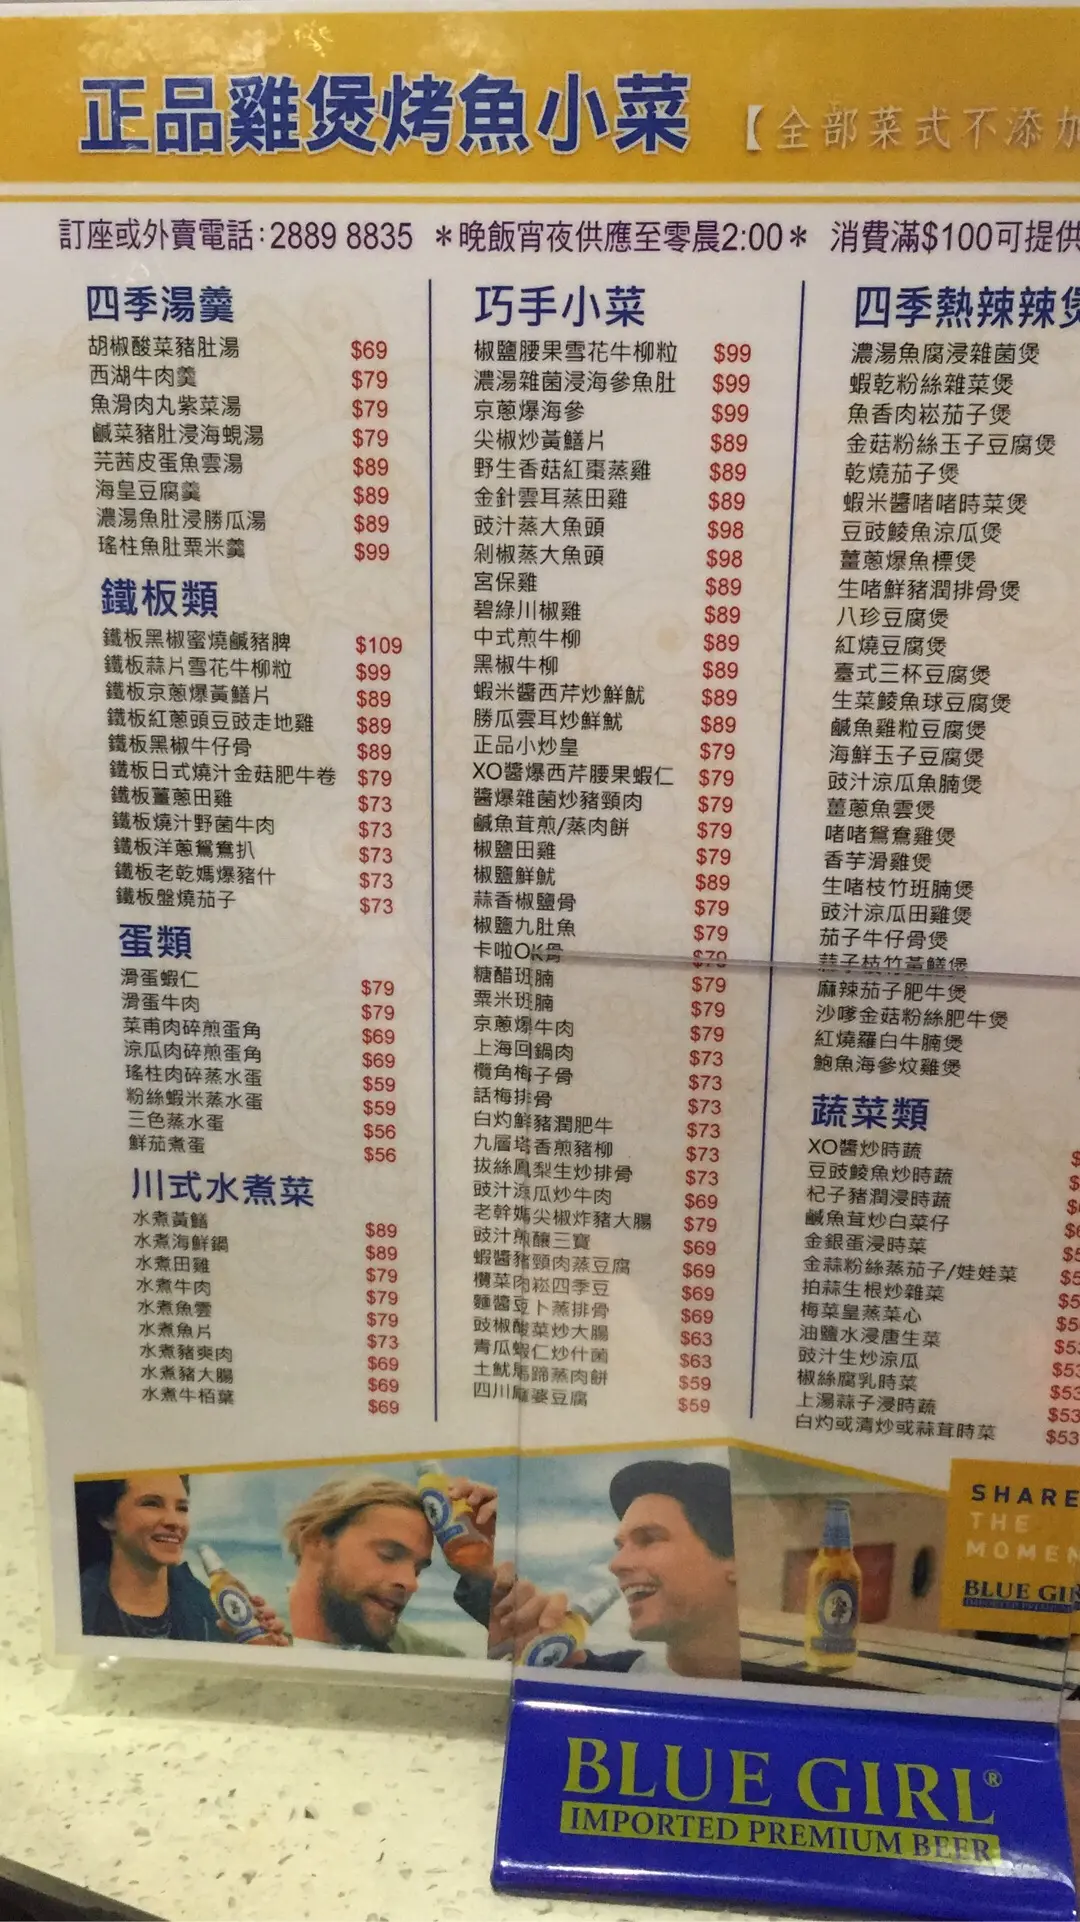 正品雞煲烤魚小菜 【全部菜式不添加
訂座或外賣電話:2889 8835 *晚飯宵夜供應至零晨2:00* 消費滿$100可提供
四季湯羹
胡椒酸菜豬肚湯 $69
西湖牛肉羹 $79
魚滑肉丸紫菜湯 $79
鹹菜豬肚浸海蜆湯 $79
芫茜皮蛋魚雲湯 $89
海皇豆腐羹 $89
濃湯魚肚浸勝瓜湯 $89
瑤柱魚肚粟米羹 $99
鐵板類
鐵板黑椒蜜燒鹹豬脾 $109
鐵板蒜片雪花牛柳粒 $99
鐵板京蔥爆黃鱔片 $89
鐵板紅蔥頭豆豉走地雞 $89
鐵板黑椒牛仔骨 $89
鐵板日式燒汁金菇肥牛卷 $79
鐵板薑蔥田雞 $73
鐵板燒汁野菌牛肉 $73
鐵板洋蔥鴛鴦扒 $73
鐵板老乾媽爆豬什 $73
鐵板盤燒茄子 $73
蛋類
滑蛋蝦仁 $79
滑蛋牛肉 $79
菜甫肉碎煎蛋角 $69
涼瓜肉碎煎蛋角 $69
瑤柱肉碎蒸水蛋 $59
粉絲蝦米蒸水蛋 $59
三色蒸水蛋 $56
鮮茄煮蛋 $56
川式水煮菜
水煮黃鱔 $89
水煮海鮮鍋 $89
水煮田雞 $79
水煮牛肉 $79
水煮魚雲 $79
水煮魚片 $73
水煮豬爽肉 $69
水煮豬大腸 $69
水煮牛栢葉 $69
巧手小菜
椒鹽腰果雪花牛柳粒 $99
濃湯雜菌浸海參魚肚 $99
京蔥爆海參 $99
尖椒炒黃鱔片 $89
野生香菇紅棗蒸雞 $89
金針雲耳蒸田雞 $89
豉汁蒸大魚頭 $98
剁椒蒸大魚頭 $98
宮保雞 $89
碧綠川椒雞 $89
中式煎牛柳 $89
黑椒牛柳 $89
蝦米醬西芹炒鮮魷 $89
勝瓜雲耳炒鮮魷 $89
正品小炒皇 $79
XO醬爆西芹腰果蝦仁 $79
醬爆雜菌炒豬頸肉 $79
鹹魚茸煎/蒸肉餅 $79
椒鹽田雞 $79
椒鹽鮮魷 $89
蒜香椒鹽骨 $79
椒鹽九肚魚 $79
卡啦OK骨 $79
糖醋班腩 $79
粟米班腩 $79
京蔥爆牛肉 $79
上海回鍋肉 $73
欖角梅子骨 $73
話梅排骨 $73
白灼鮮豬潤肥牛 $73
九層塔香煎豬柳 $73
拔絲鳳梨生炒排骨 $73
豉汁涼瓜炒牛肉 $69
老幹媽尖椒炸豬大腸 $79
豉汁煎釀三寶 $69
蝦醬豬頸肉蒸豆腐 $69
欖菜肉崧四季豆 $69
麵醬豆卜蒸排骨 $69
豉椒酸菜炒大腸 $63
青瓜蝦仁炒什菌 $63
土魷馬蹄蒸肉餅 $59
四川麻婆豆腐 $59
四季熱辣辣煲
濃湯魚腐浸雜菌煲
蝦乾粉絲雜菜煲
魚香肉崧茄子煲
金菇粉絲玉子豆腐煲
乾燒茄子煲
蝦米醬啫啫時菜煲
豆豉鯪魚涼瓜煲
薑蔥爆魚標煲
生啫鮮豬潤排骨煲
八珍豆腐煲
紅燒豆腐煲
臺式三杯豆腐煲
生菜鯪魚球豆腐煲
鹹魚雞粒豆腐煲
海鮮玉子豆腐煲
豉汁涼瓜魚腩煲
薑蔥魚雲煲
啫啫鴛鴦雞煲
香芋滑雞煲
生啫枝竹班腩煲
豉汁涼瓜田雞煲
茄子牛仔骨煲
蒜子枝竹黃鱔煲
麻辣茄子肥牛煲
沙嗲金菇粉絲肥牛煲
紅燒羅白牛腩煲
鮑魚海參炆雞煲
蔬菜類
XO醬炒時蔬 $
豆豉鯪魚炒時蔬 $
杞子豬潤浸時蔬 $
鹹魚茸炒白菜仔 $
金銀蛋浸時菜 $5
金蒜粉絲蒸茄子/娃娃菜 $5
拍蒜生根炒雜菜 $5
梅菜皇蒸菜心 $5
油鹽水浸唐生菜 $53
豉汁生炒涼瓜 $53
椒絲腐乳時菜 $53
上湯蒜子浸時蔬 $53
白灼或清炒或蒜茸時菜 $53
SHARE
THE
MOMEN
BLUE GIR
BLUE GIRL®
IMPORTED PREMIUM BEER